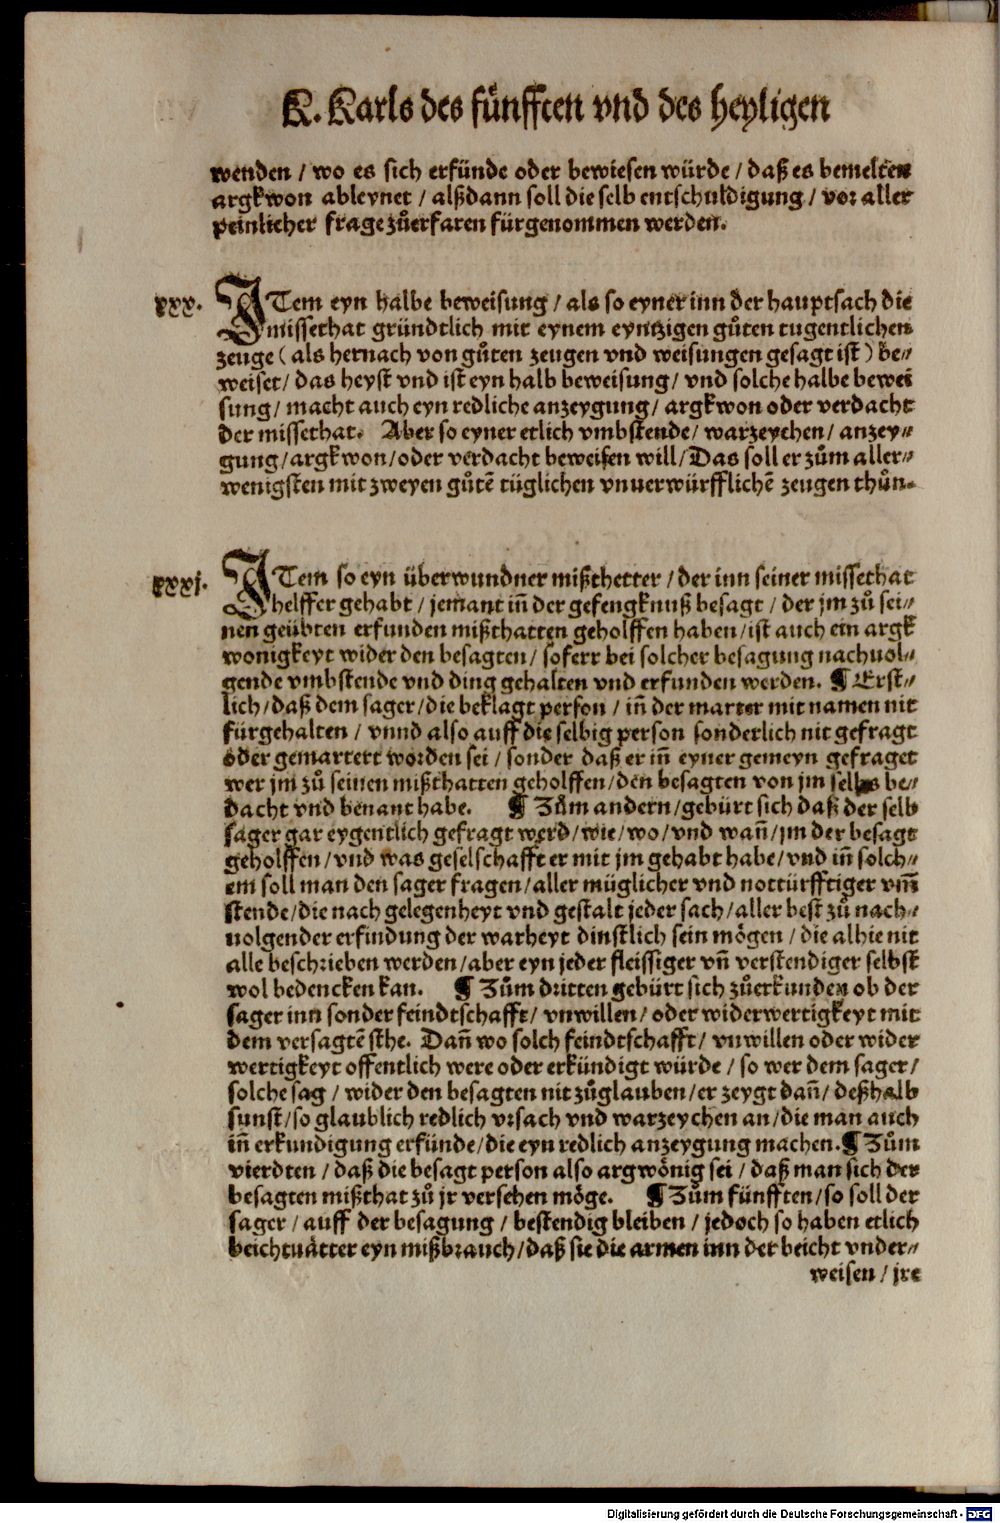 K. Karls des fünfften vnd des heyligen
wenden / wo es sich erfünde oder bewiesen würde / daß es bemelten
argkwon ableynet / alßdann soll die selb entschuldigung / vor aller
peinlicher frage zůerfaren fürgenommen werden.
xxx. ITem eyn halbe beweisung / als so eyner inn der hauptsach die
missethat gründtlich mit eynem eyntzigen gůten tugentlichen
zeuge ( als hernach von gůten zeugen vnd weisungen gesagt ist ) be⸗
weiset / das heyst vnd ist eyn halb beweisung / vnd solche halbe bewei
sung / macht auch eyn redliche anzeygung / argkwon oder verdacht
der missethat. Aber so eyner etlich vmbstende / warzeychen / anzey⸗
gung / argkwon / oder verdacht beweisen will / Das soll er zům aller⸗
wenigsten mit zweyen gůtē tüglichen vnuerwürfflichē zeugen thůn.
xxxj. ITem so eyn überwundner mißthetter / der inn seiner missethat
helffer gehabt / jemant iñ der gefengknuß besagt / der jm zů sei⸗
nen geübten erfunden mißthatten geholffen haben / ist auch ein argk
wonigkeyt wider den besagten / soferr bei solcher besagung nachuol⸗
gende vmbstende vnd ding gehalten vnd erfunden werden. ¶ Erst⸗
lich / daß dem sager / die beklagt person / iñ der marter mit namen nit
fürgehalten / vnnd also auff die selbig person sonderlich nit gefragt
oder gemartert worden sei / sonder daß er iñ eyner gemeyn gefraget
wer jm zů seinen mißthatten geholffen / den besagten von jm selbs be⸗
dacht vnd benant habe. ¶ Zům andern / gebürt sich daß der selb
sager gar eygentlich gefragt werd / wie / wo / vnd wañ / jm der besagt
geholffen / vnd was geselschafft er mit jm gehabt habe / vnd iñ solch⸗
em soll man den sager fragen / aller müglicher vnd nottürfftiger vm̃
stende / die nach gelegenheyt vnd gestalt jeder sach / aller best zů nach⸗
uolgender erfindung der warheyt dinstlich sein mögen / die alhie nit
alle beschrieben werden / aber eyn jeder fleissiger vñ verstendiger selbst
wol bedencken kan. ¶ Zům dritten gebürt sich zůerkunden ob der
sager inn sonder feindtschafft / vnwillen / oder widerwertigkeyt mit
dem versagtē sthe. Dañ wo solch feindtschafft / vnwillen oder wider
wertigkeyt offentlich were oder erkündigt würde / so wer dem sager /
solche sag / wider den besagten nit zůglauben / er zeygt dañ / deßhalb
sunst / so glaublich redlich vrsach vnd warzeychen an / die man auch
iñ erkundigung erfünde / die eyn redlich anzeygung machen. ¶ Zům
vierdten / daß die besagt person also argwönig sei / daß man sich der
besagten mißthat zů jr versehen möge. ¶ Zům fünfften / so soll der
sager / auff der besagung / bestendig bleiben / jedoch so haben etlich
beichtuätter eyn mißbrauch / daß sie die armen inn der beicht vnder⸗
weisen / jre
Digitalisierung gefördert durch die Deutsche Forschungsgemeinschaft - DFG